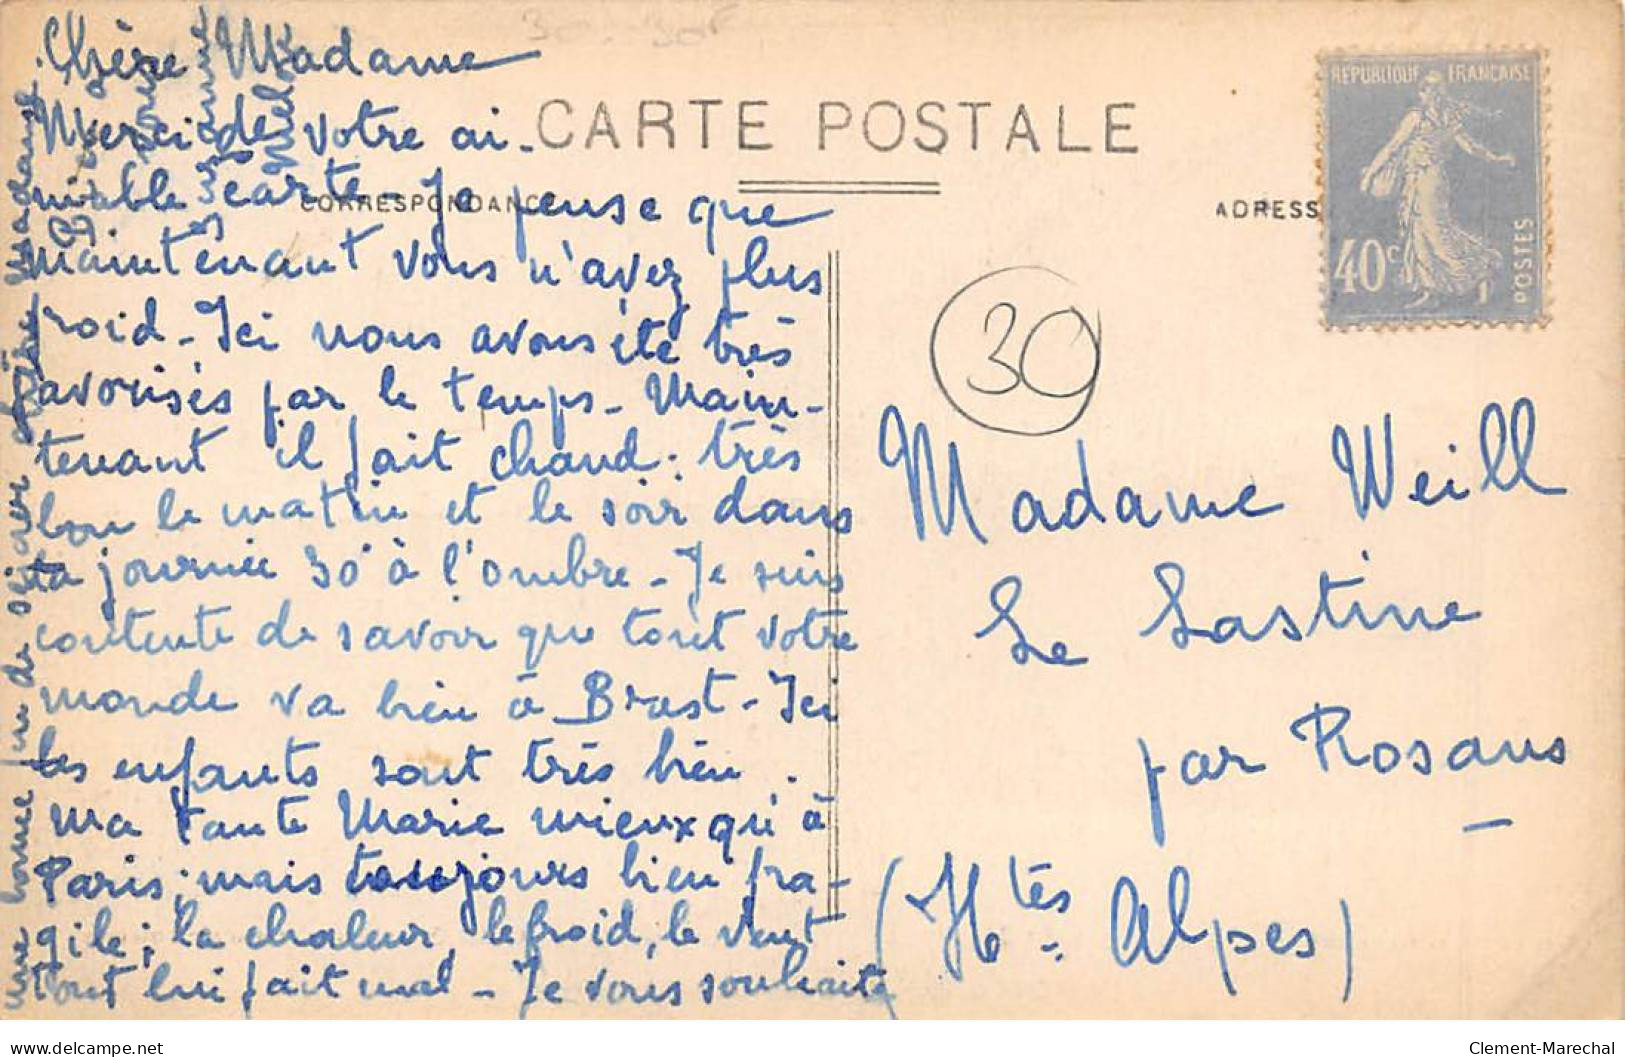 Chère Madame
Merci de votre ai-
mable carte - Je pense que
maintenant vous n'avez plus
froid - Ici nous avons été très
favorisés par le temps - Main-
tenant il fait chaud : très
bon le matin et le soir dans
la journée 30° à l'ombre - Je suis
contente de savoir que tout votre
monde va bien à Brest - Ici
les enfants sont très bien.
ma tante Marie mieux qu'à
Paris ; mais toujours bien fra-
gile ; la chaleur, le froid, le vent
tout lui fait mal - Je vous souhaite
une bonne fin de séjour chère Madame
30 - 30F
CARTE POSTALE
CORRESPONDANCE
ADRESS
REPUBLIQUE FRANÇAISE
40c
POSTES
30
Madame Weill
Le Lastine
par Rosans
(Htes Alpes)
delcampe.net
Clement-Marechal